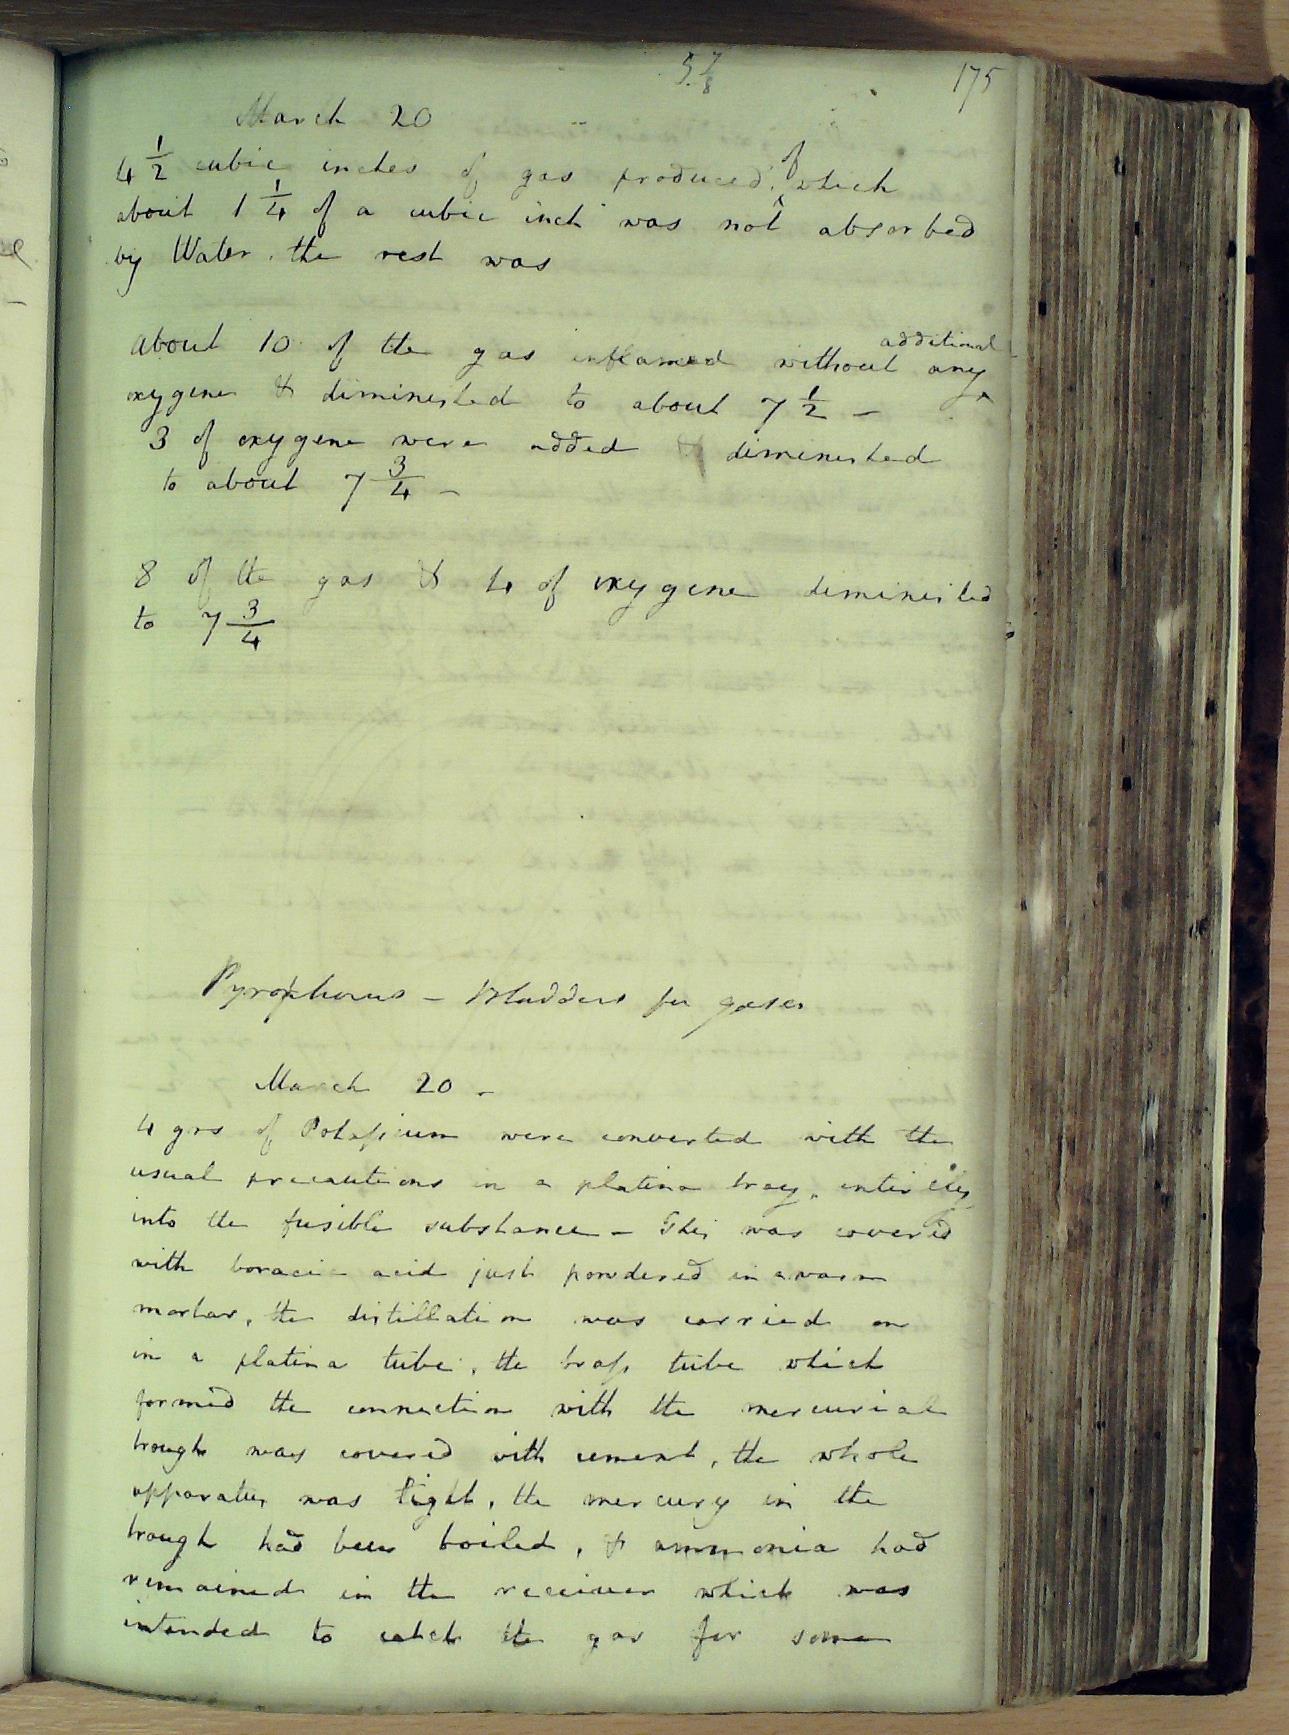 5 7/8 175
March 20
4 1/2 cubic inches of gas produced, of which
about 1 1/4 of a cubic inch was not absorbed
by Water. the rest was
about 10 of the gas inflamed without any additional
oxygene & diminished to about 7 1/2 –
3 of oxygene were added & diminished
to about 7 3/4 –
8 of the gas & 4 of oxygene diminished
to 7 3/4
Pyrophorus – Bladders for gases
March 20 –
4 grs of Potassium were converted with the
usual precautions in a platina tray, entirely
into the fusible substance – This was covered
with boracic acid just powdered in a warm
mortar, the distillation was carried on
in a platina tube, the brass tube which
formed the connection with the mercurial
trough was covered with cement, the whole
apparatus was tight, the mercury in the
trough had been boiled, & ammonia had
remained in the receiver which was
intended to catch the gas for some